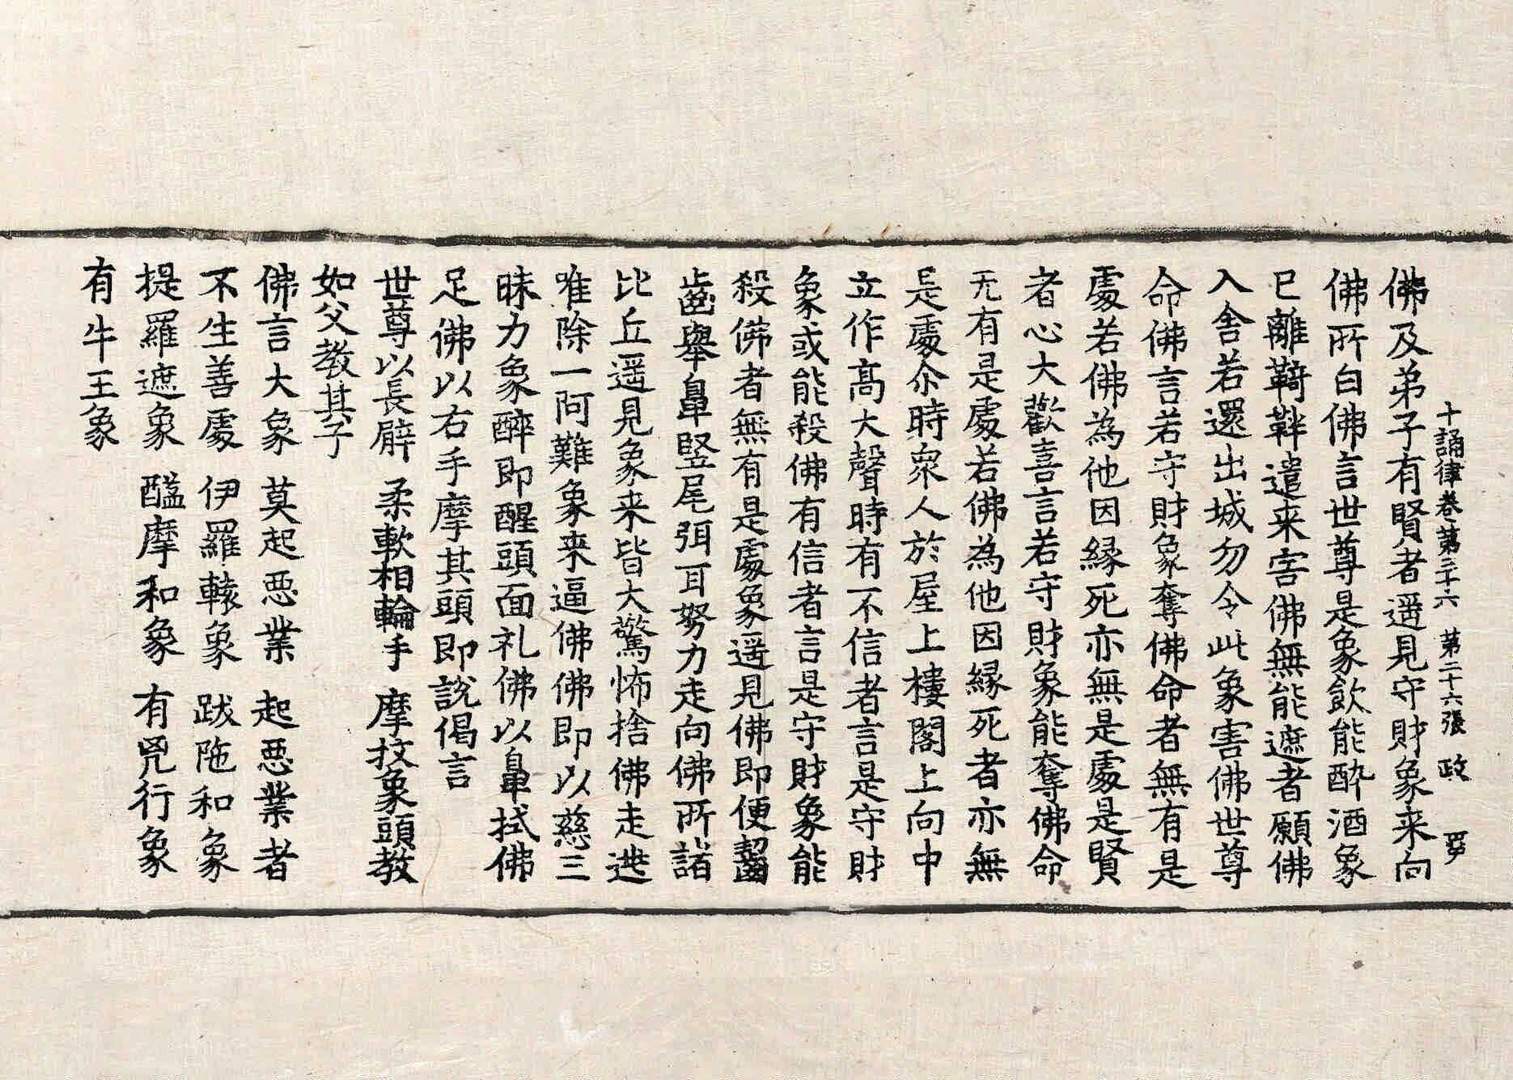 十誦律卷第三十六 第二十六張 政
佛及弟子有賢者遥見守財象来向
佛所白佛言世尊是象飲能醉酒象
已離鞿靽遣来害佛無能遮者願佛
入舎若還出城勿令此象害佛世尊
命佛言若守財象奪佛命者無有是
處若佛為他因縁死亦無是處是賢
者心大歡喜言若守財象能奪佛命
无有是處若佛為他因縁死者亦無
是處尒時衆人於屋上樓閣上向中
立作髙大聲時有不信者言是守財
象或能殺佛有信者言是守財象能
殺佛者無有是處象遥見佛即便齧
齒舉鼻竪尾弭耳努力走向佛所諸
比丘遥見象来皆大驚怖捨佛走迯
唯除一阿難象来逼佛佛即以慈三
昧力象醉即醒頭面礼佛以鼻拭佛
足佛以右手摩其頭即說偈言
世尊以長臂 柔軟相輪手 摩抆象頭教
如父教其子
佛言大象 莫起惡業 起惡業者
不生善處 伊羅𨍏象 跋陁和象
提羅遮象 醯摩和象 有兕行象
有牛王象